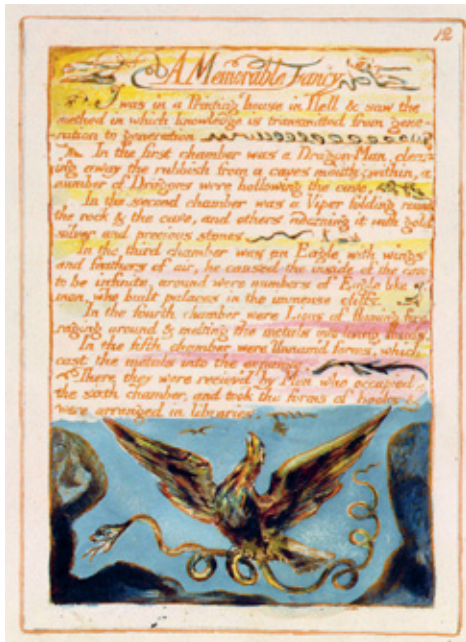 12
A Memorable Fancy
I was in a Printing house in Hell & saw the
method in which knowledge is transmitted from gene-
ration to generation
In the first chamber was a Dragon-Man, clear-
ing away the rubbish from a caves mouth; within, a
number of Dragons were hollowing the cave,
In the second chamber was a Viper folding round
the rock & the cave, and others adorning it with gold
silver and precious stones.
In the third chamber was an Eagle with wings
and feathers of air, he caused the inside of the cave
to be infinite, around were numbers of Eagle like
men, who built palaces in the immense cliffs.
In the fourth chamber were Lions of flaming fire
raging around & melting the metals into living fluids.
In the fifth chamber were Unnam'd forms, which
cast the metals into the expanse.
There they were reciev'd by Men who occupied
the sixth chamber, and took the forms of books &
were arranged in libraries.